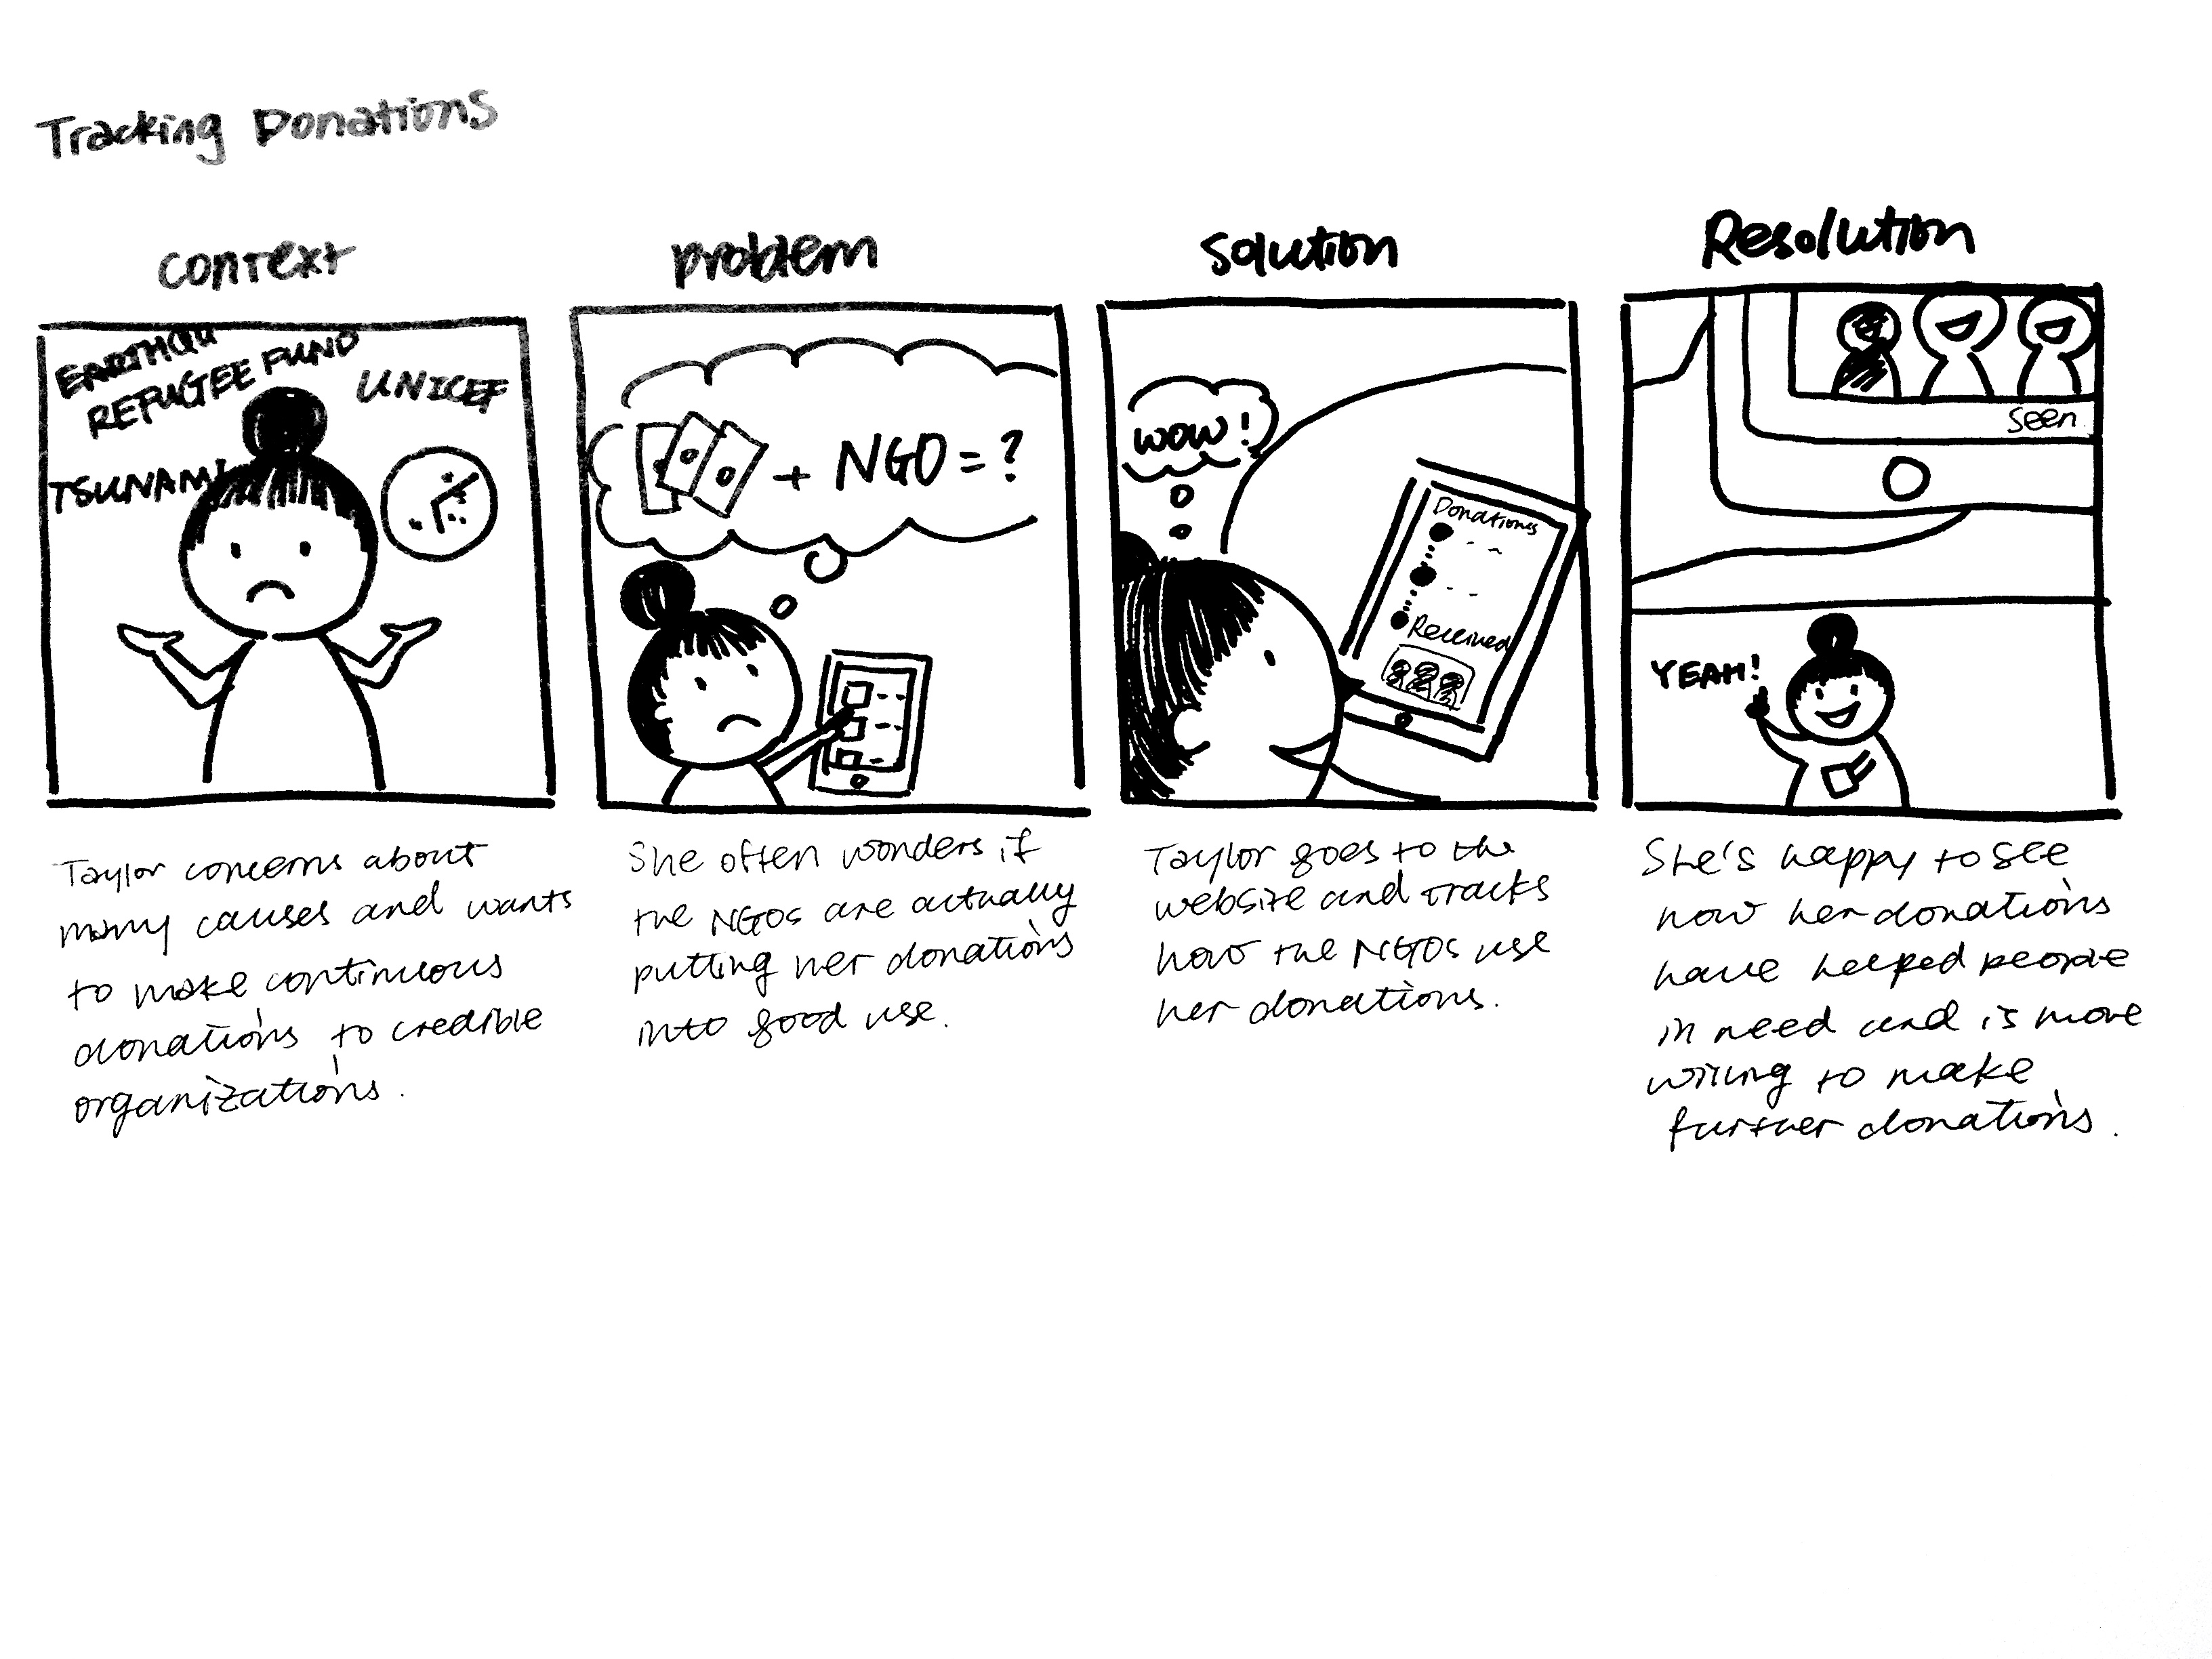 Tracking Donations
context
EARTHQU
REFUGEE FUND
UNICEF
TSUNAMI
Taylor concerns about
many causes and wants
to make continuous
donations to credible
organizations.
problem
+ NGO = ?
She often wonders if
the NGOs are actually
putting her donations
into good use.
solution
WOW!
Donations
Received
Taylor goes to the
website and tracks
how the NGOs use
her donations.
Resolution
seen
YEAH!
She's happy to see
how her donations
have helped people
in need and is more
willing to make
further donations.